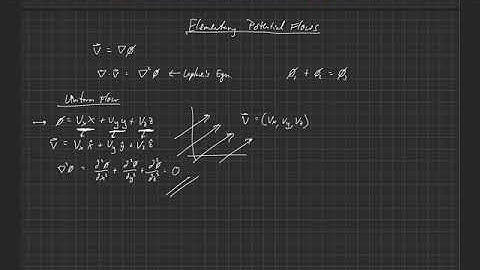 Elementary Potential Flows
V⃗ = ∇ϕ
∇·V⃗ = ∇²ϕ ← Laplace's Eqn
ϕ₁ + ϕ₂ = ϕ₃
Uniform Flow
→ ϕ = Vₓx + V_y y + V_z z
V⃗ = (Vₓ, V_y, V_z)
V⃗ = Vₓ x̂ + V_y ŷ + V_z ẑ
∇²ϕ = ∂²ϕ/∂x² + ∂²ϕ/∂y² + ∂²ϕ/∂z² = 0